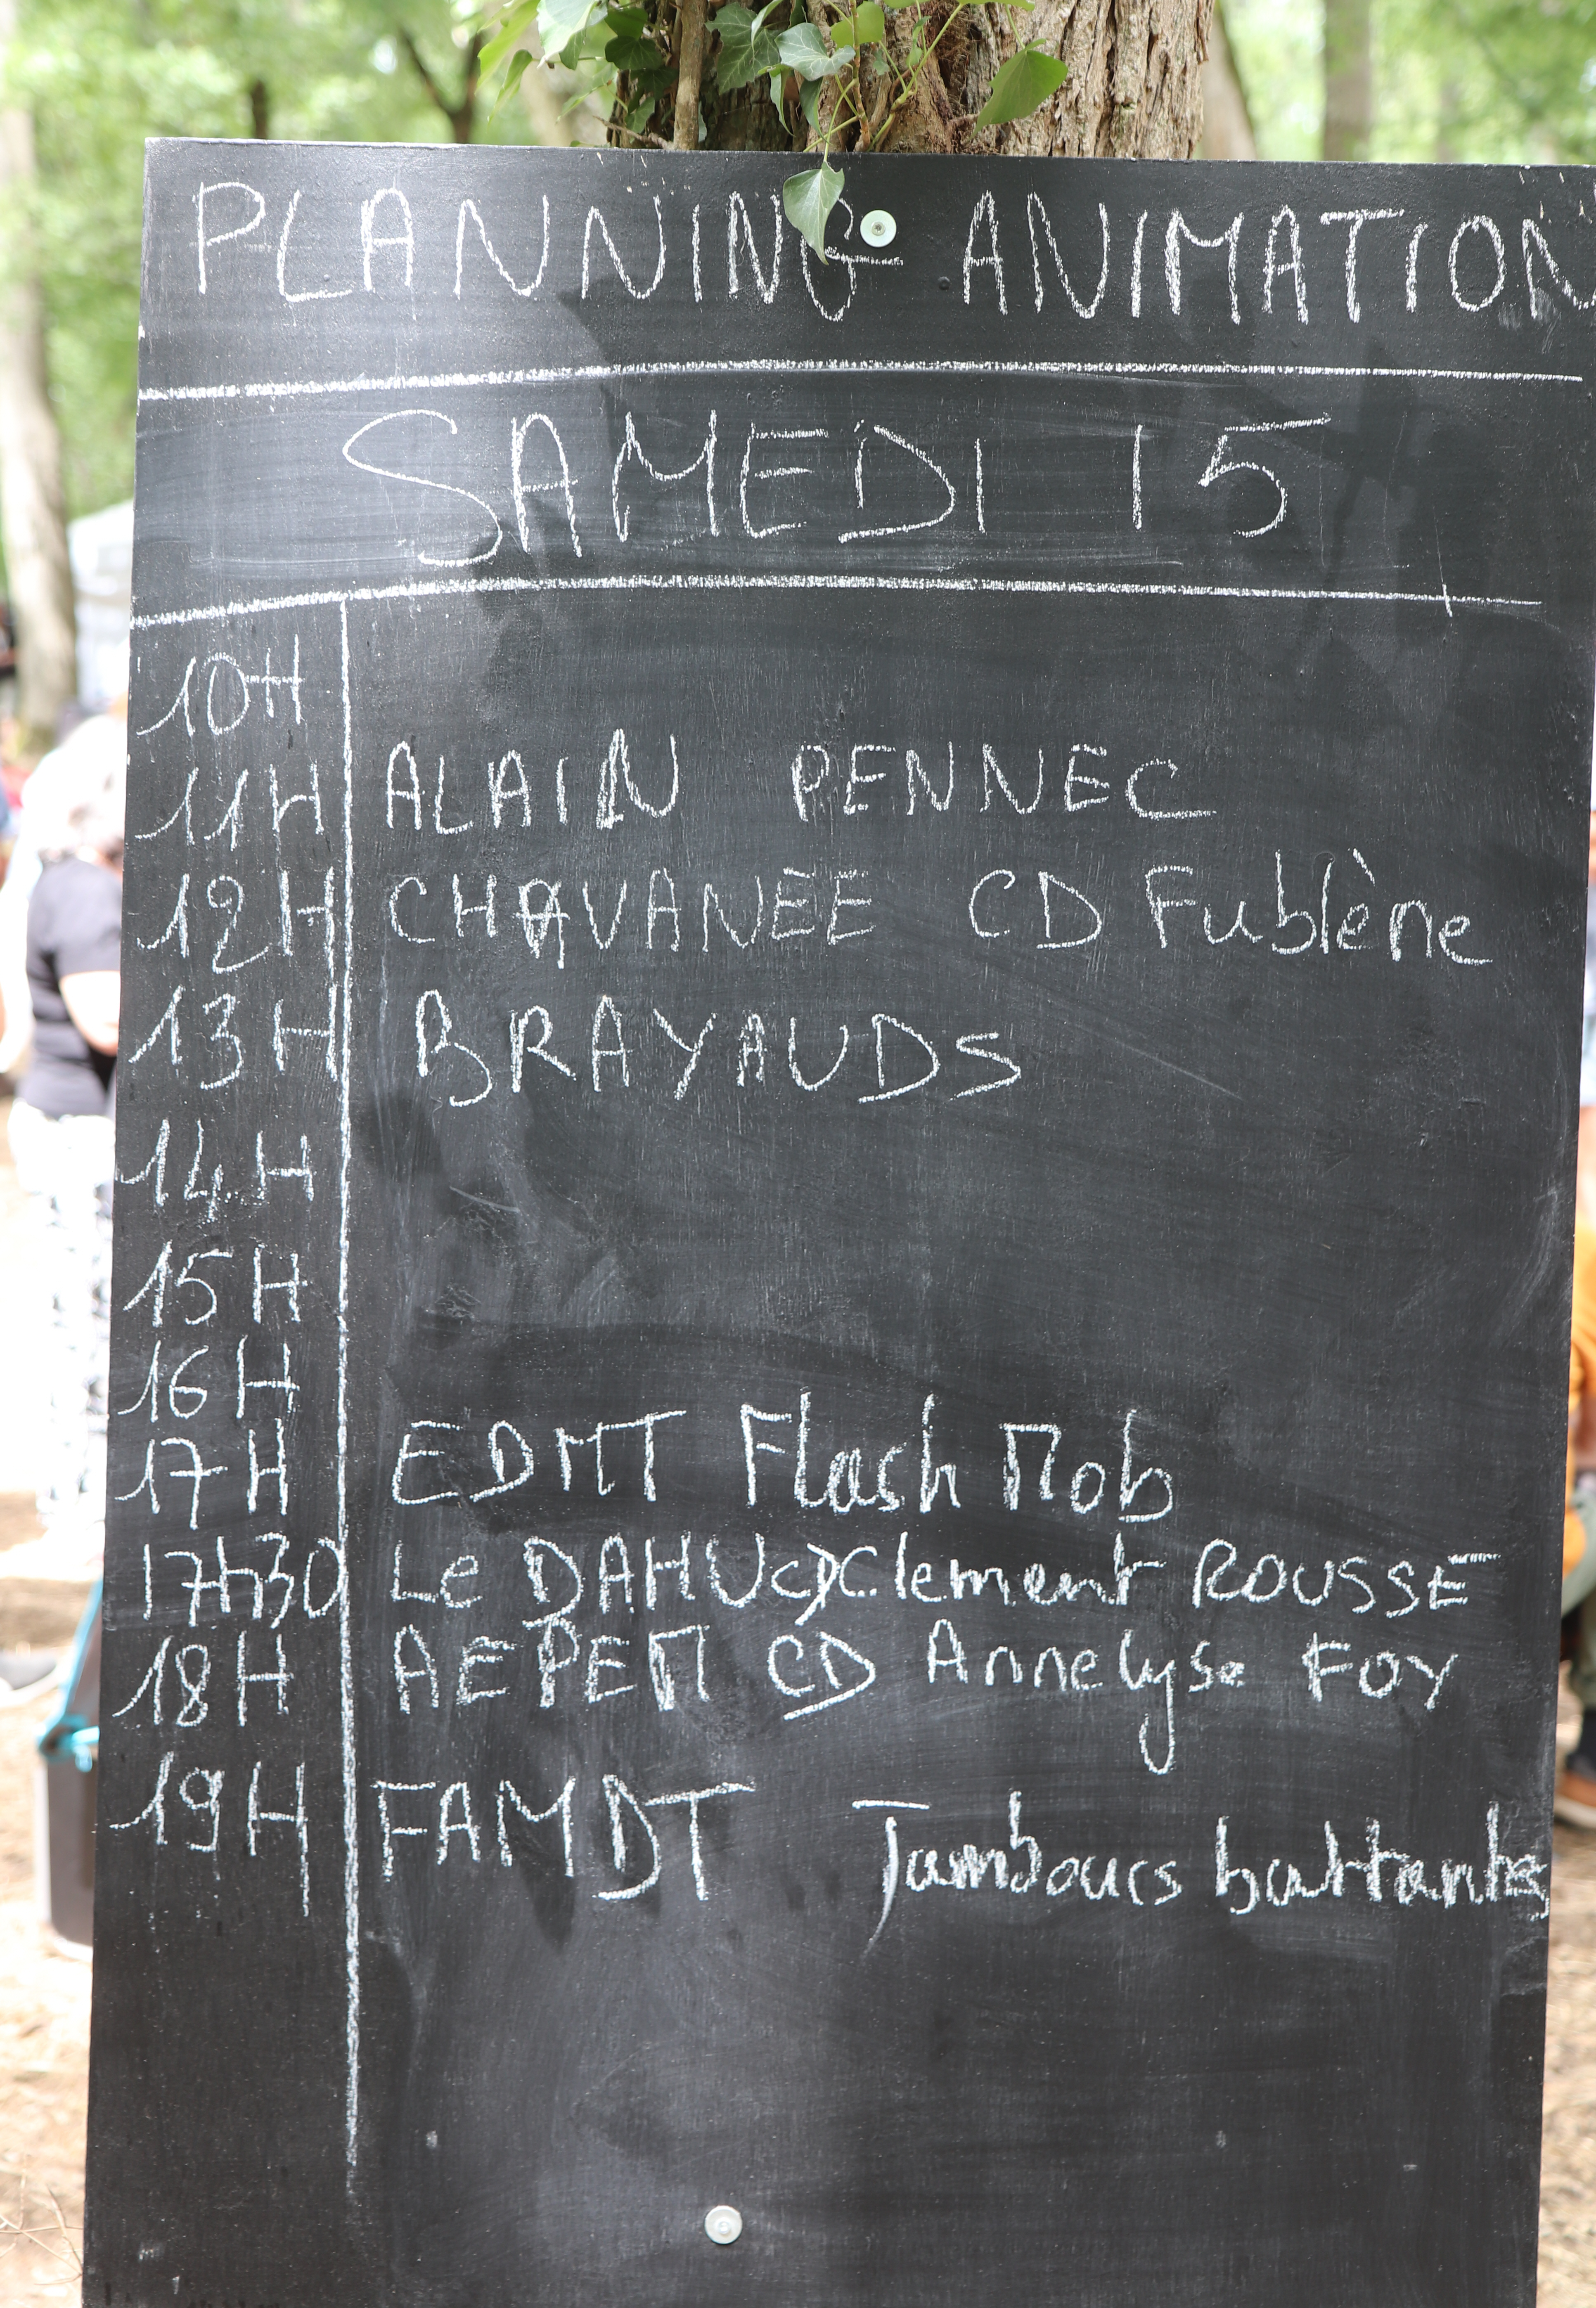 PLANNING ANIMATION
SAMEDI 15
10H
11H ALAIN PENNEC
12H CHAVANÉE CD Fublène
13H BRAYAUDS
14H
15H
16H
17H EDMT Flash Mob
17h30 Le DAHU CD Clement ROUSSE
18H AEPEM CD Annelyse FOY
19H FAMDT Tambours battants